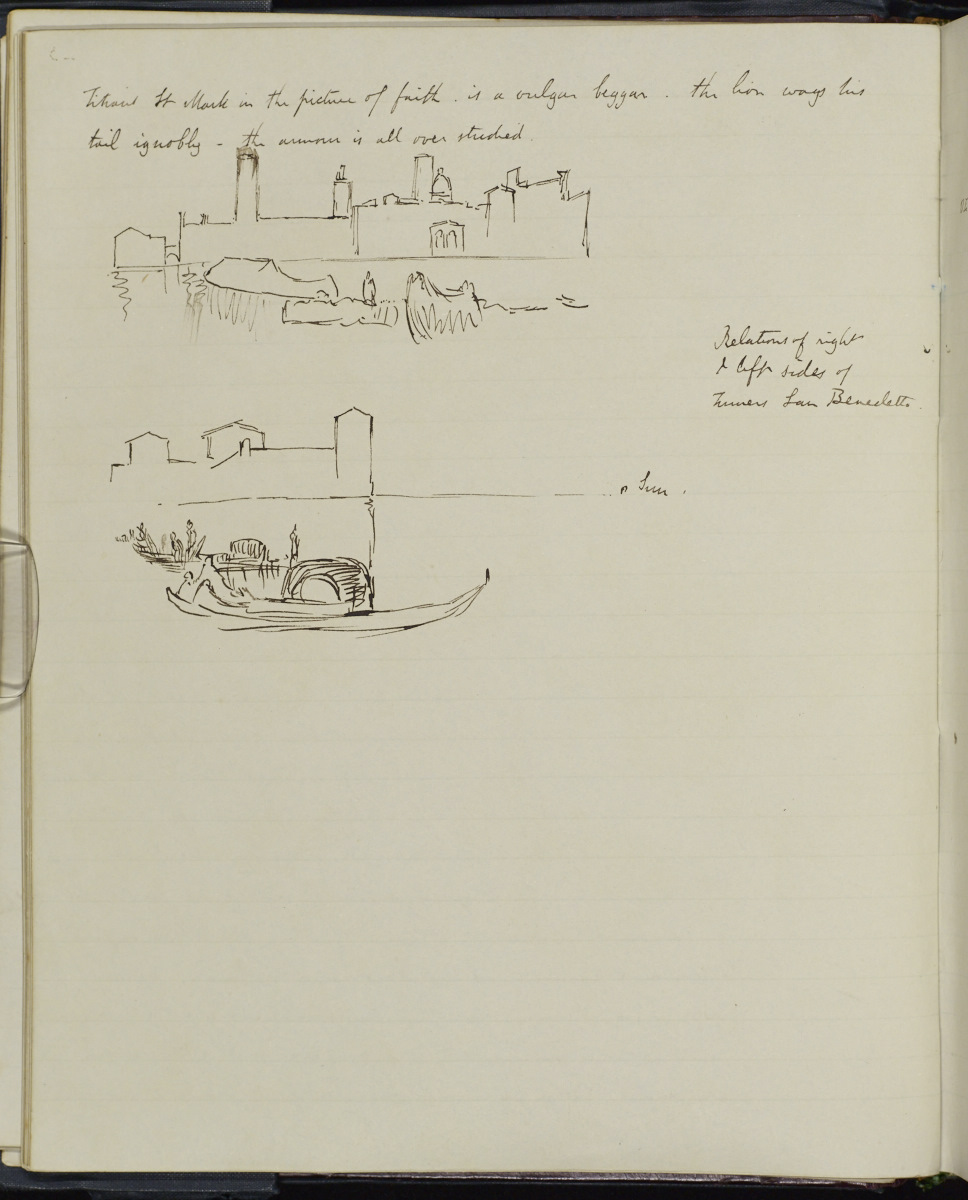 Titians St Mark in the picture of faith . is a vulgar beggar . the lion wags his
tail ignobly - the armour is all over studied.
Relations of right
& left sides of
Turners San Benedetto.
Sun .